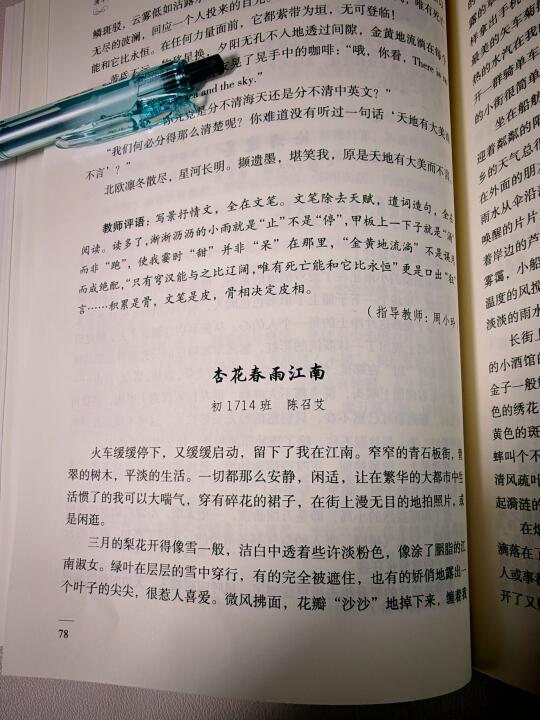 鳞斑驳，云雾低如沾露水
无尽的波澜，回应一个人投来的目光
能和它比永恒。在任何力量面前，它都萦带为垣，无可登临！
夕阳无孔不入地透过间隙，金黄地流淌在每个
晃了晃手中的咖啡：“哦，你看，There is
and the sky.”
是分不清海天还是分不清中英文？”
“我们何必分得那么清楚呢？你难道没有听过一句话‘天地有大美而
不言’？”
北欧凛冬散尽，星河长明。撷遗墨，堪笑我，原是天地有大美而不言。
教师评语：写景抒情文，全在文笔。文笔除去天赋，遣词造句，全在
阅读。读多了，淅淅沥沥的小雨就是“止”不是“停”，甲板上一下子就是“涌”
而非“跑”，使我霎时“甜”并非“呆”在那里，“金黄地流淌”不是误用
而成绝配，“只有穹汉能与之比辽阔，唯有死亡能和它比永恒”更是口出“狂
言……积累是骨，文笔是皮，骨相决定皮相。
（指导教师：周小玲
杏花春雨江南
初1714班 陈召艾
火车缓缓停下，又缓缓启动，留下了我在江南。窄窄的青石板街，普
翠的树木，平淡的生活。一切都那么安静，闲适，让在繁华的大都市中生
活惯了的我可以大喘气，穿有碎花的裙子，在街上漫无目的地拍照片，或
是闲逛。
三月的梨花开得像雪一般，洁白中透着些许淡粉色，像涂了胭脂的江
南淑女。绿叶在层层的雪中穿行，有的完全被遮住，也有的娇俏地露出一
个叶子的尖尖，很惹人喜爱。微风拂面，花瓣“沙沙”地掉下来，缠着我
78
露的草
样拿出手机
最美的矢车菊
热的水汽在我
开一群骑单车
的小街很简单
坐在船舫
迎着粼粼的阳
乡的天气总很
在外面的朋友
雨水从伞沿
唤醒的片片
着岸边的芦
雾霭，小船
温度的风搅
淡淡的雨水
长街上
的小酒馆的
金子一般
色的绣花
黄色的斑
蝉叫个不
清风疏叶
起漪涟的
在烟
滴落在了
人或事
开了又